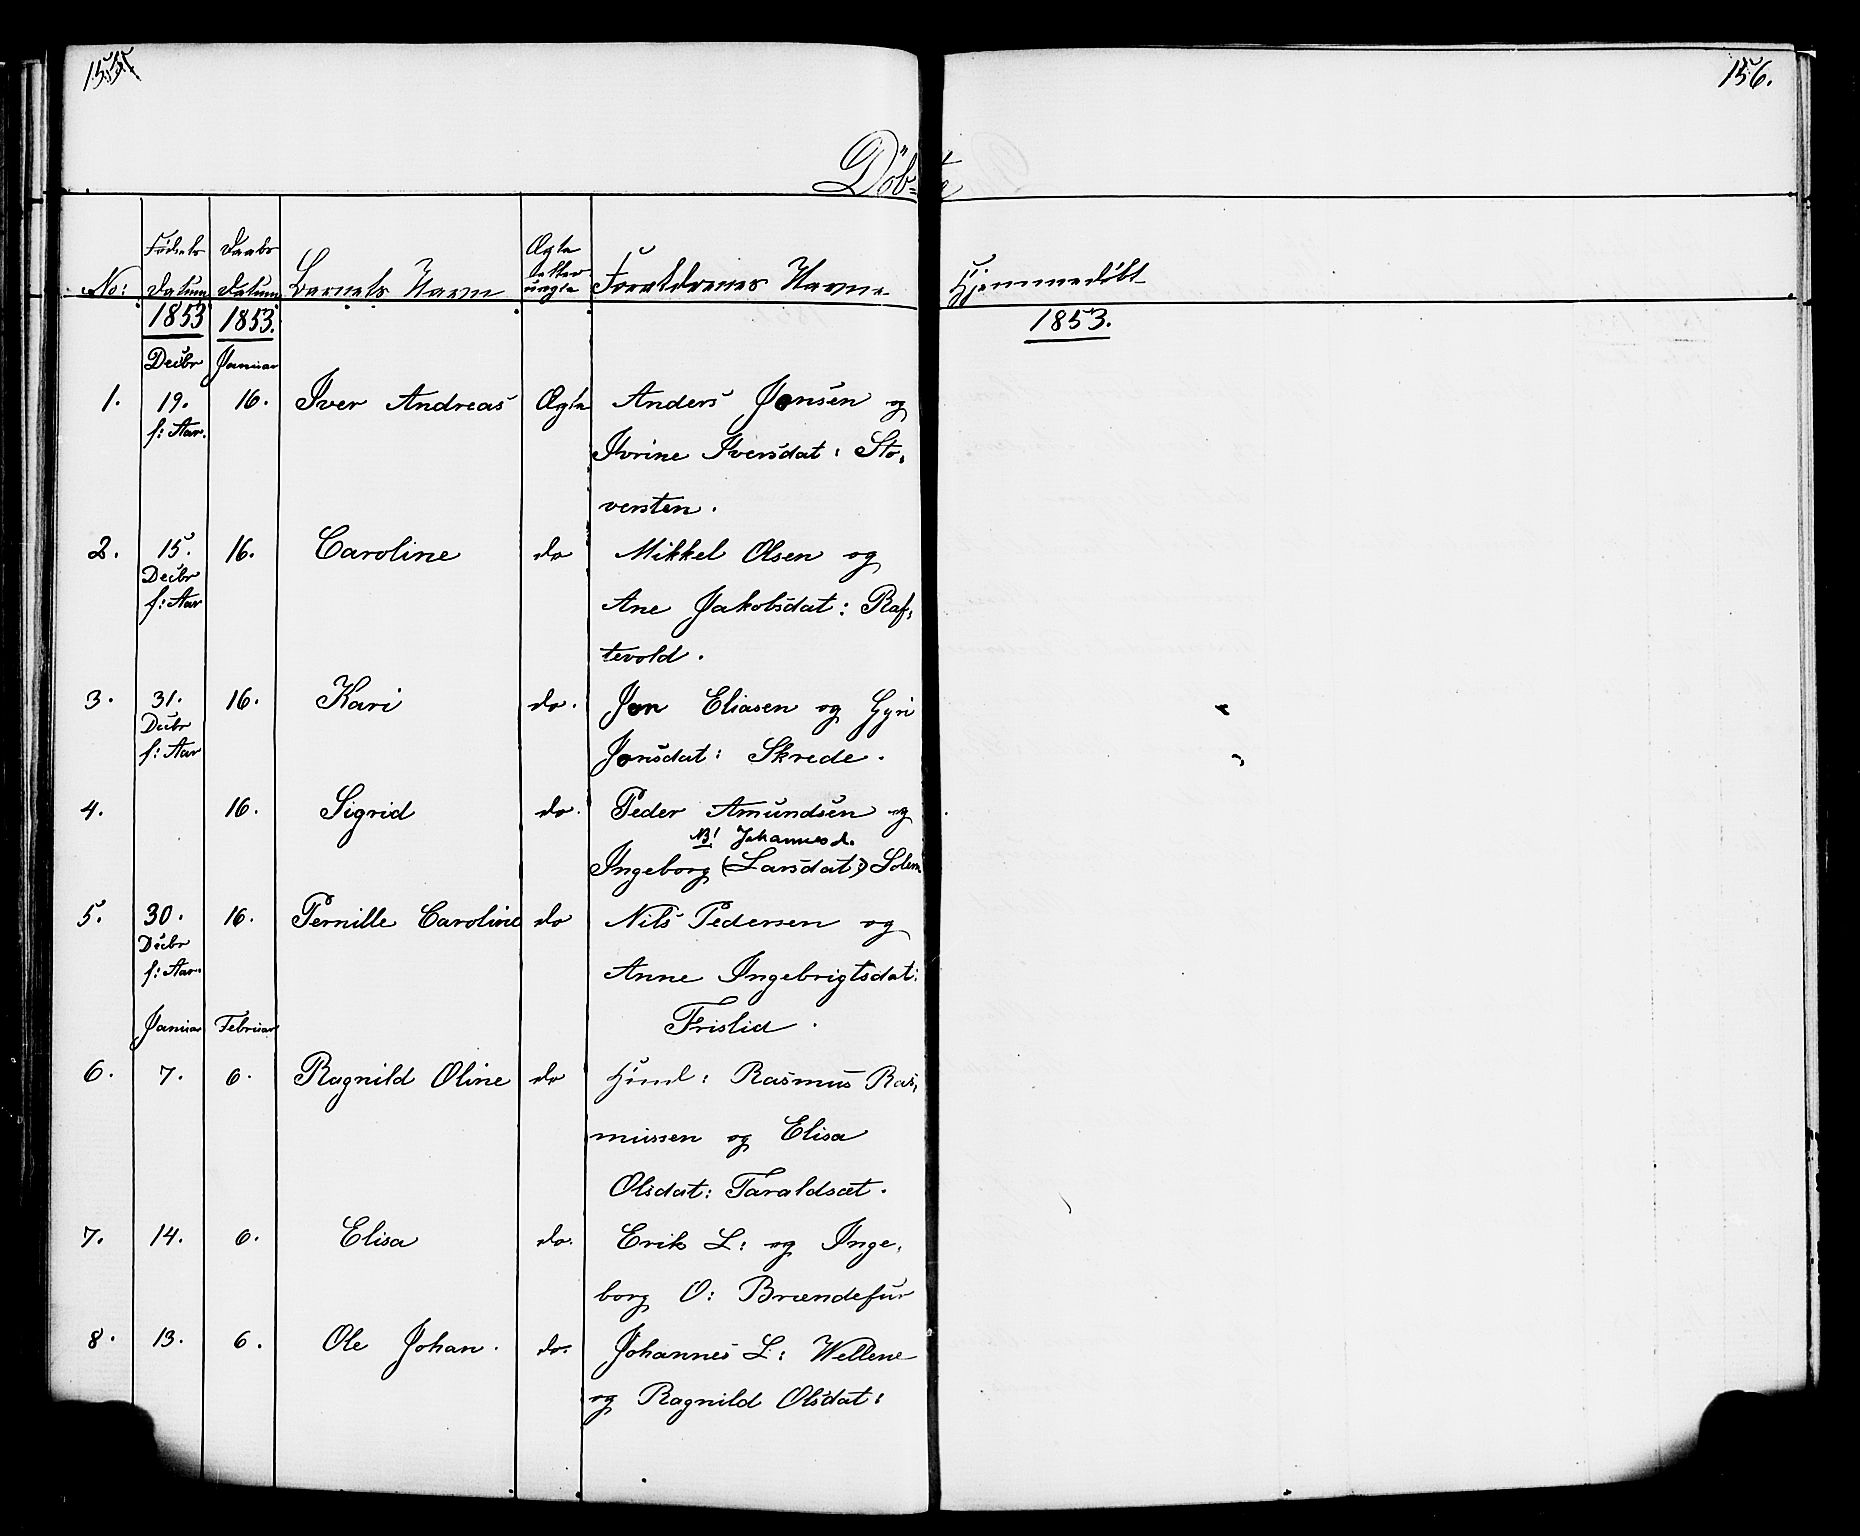 155.
156.
Döb-te
No: Fødsels Datum Daabs Datum Barnets Navn Ægte eller uægte Forældrenes Navne Hjemmedøbt
1853 1853. 1853.
Decbr Januar
1. 19. 16. Iver Andreas Ægte Anders Jonsen og
f: Aar. Ivrine Iversdat: Sto-
versten.
2. 15. 16. Caroline do Mikkel Olsen og
Decbr
f: Aar Ane Jakobsdat: Raf-
tevold.
3. 31. 16. Kari do. Jon Eliasen og Gyri
Decbr
f: Aar Jonsdat: Skrede.
4. 16. Sigrid do. Peder Amundsen og
NB! Johannesd.
Ingeborg (Larsdat:) Solem
5. 30. 16. Pernille Caroline do Nils Pedersen og
Decbr
f: Aar. Anne Ingebrigtsdat:
Januar Februar Frislid.
6. 7. 6. Ragnild Oline do : Rasmus Ras-
mussen og Elisa
Olsdat: Taraldsæt.
7. 14. 6. Elisa do. Erik L: og Inge-
borg O: Brændefur
8. 13. 6. Ole Johan. do. Johannes L: Wellene
og Ragnild Olsdat: